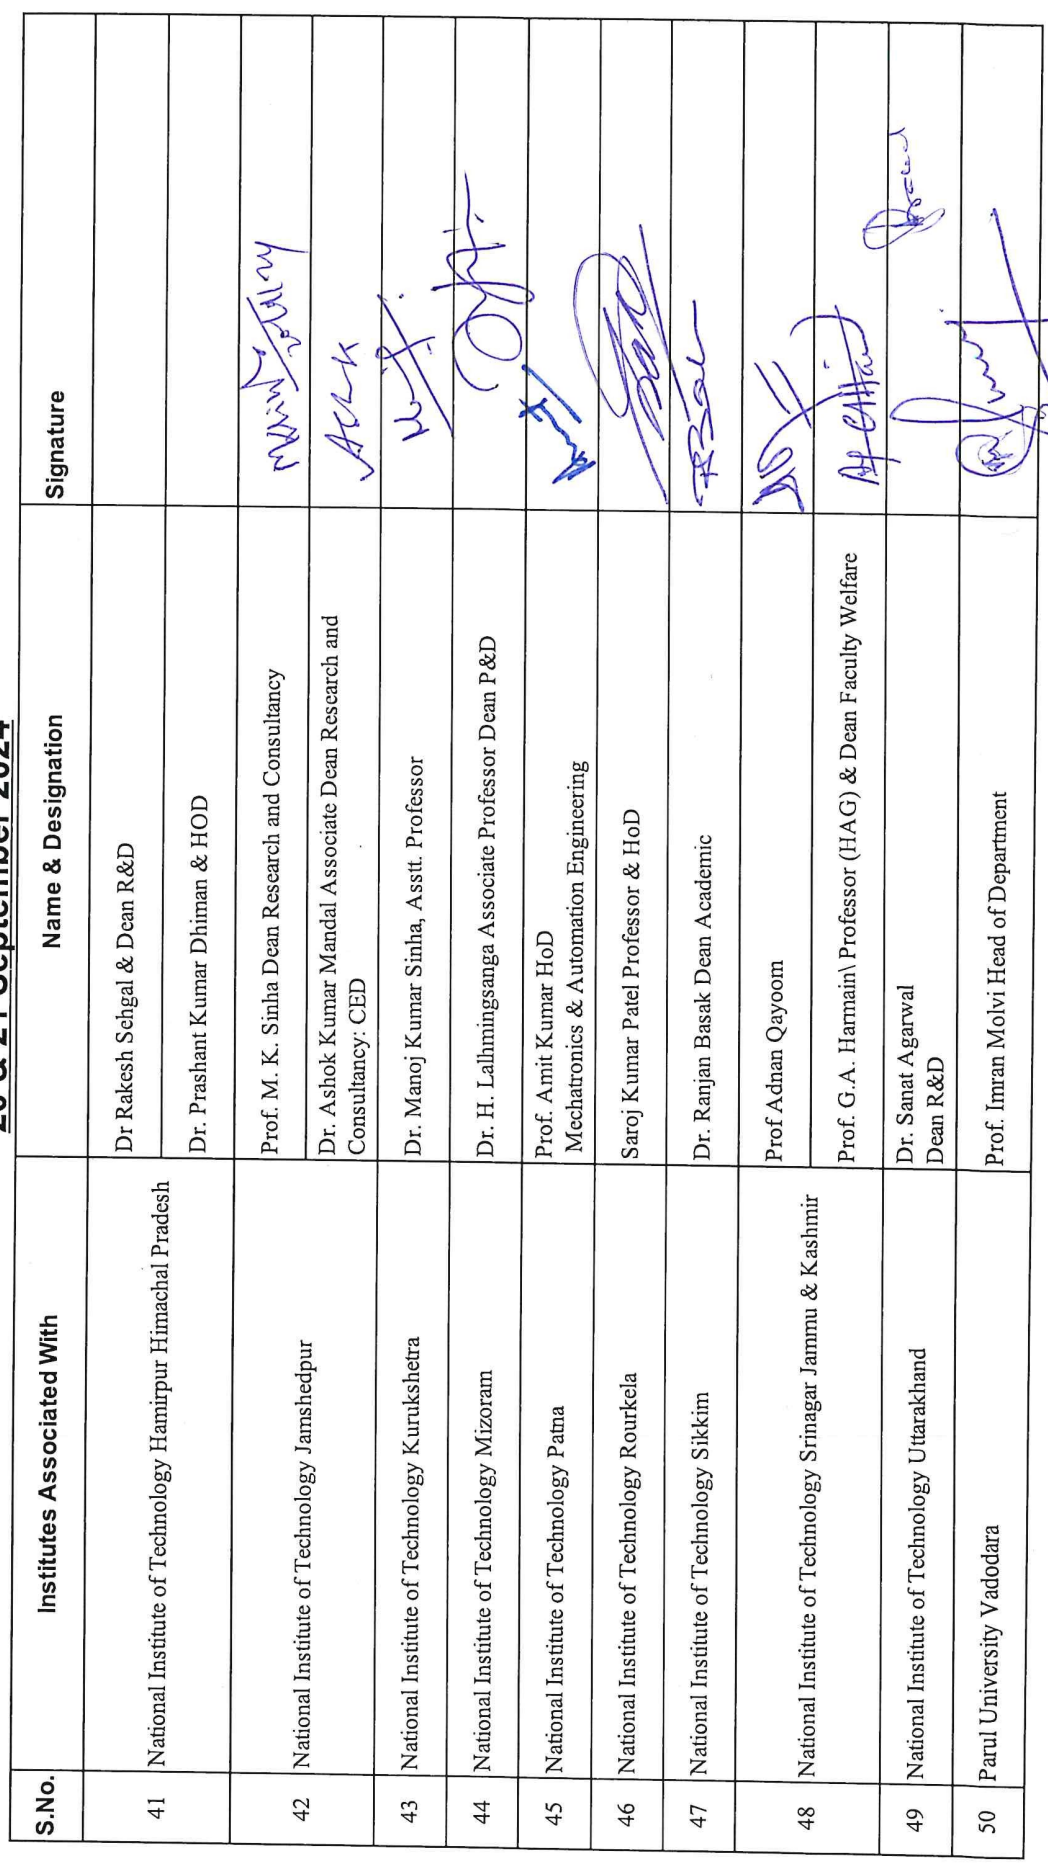 20 & 21 September 2024
S.No. Institutes Associated With Name & Designation Signature
41 National Institute of Technology Hamirpur Himachal Pradesh Dr Rakesh Sehgal & Dean R&D
Dr. Prashant Kumar Dhiman & HOD
42 National Institute of Technology Jamshedpur Prof. M. K. Sinha Dean Research and Consultancy
Dr. Ashok Kumar Mandal Associate Dean Research and
Consultancy: CED
43 National Institute of Technology Kurukshetra Dr. Manoj Kumar Sinha, Asstt. Professor
44 National Institute of Technology Mizoram Dr. H. Lalhmingsanga Associate Professor Dean P&D
45 National Institute of Technology Patna Prof. Amit Kumar HoD
Mechatronics & Automation Engineering
46 National Institute of Technology Rourkela Saroj Kumar Patel Professor & HoD
47 National Institute of Technology Sikkim Dr. Ranjan Basak Dean Academic
48 National Institute of Technology Srinagar Jammu & Kashmir Prof Adnan Qayoom
Prof. G.A. Harmain\ Professor (HAG) & Dean Faculty Welfare
49 National Institute of Technology Uttarakhand Dr. Sanat Agarwal
Dean R&D
50 Parul University Vadodara Prof. Imran Molvi Head of Department